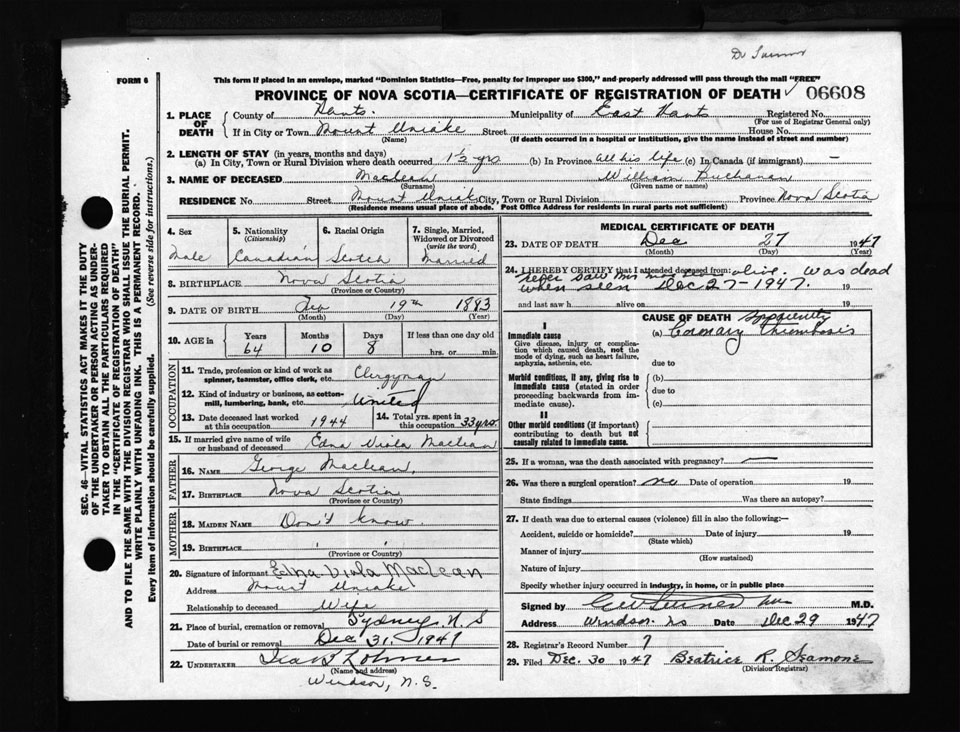 FORM 6
This form if placed in an envelope, marked "Dominion Statistics—Free, penalty for improper use $300," and properly addressed will pass through the mail "FREE"
PROVINCE OF NOVA SCOTIA—CERTIFICATE OF REGISTRATION OF DEATH 06608
1. PLACE OF DEATH County of Hants Municipality of East Hants Registered No.
(For use of Registrar General only)
If in City or Town Mount Uniake Street House No.
(Name) (If death occurred in a hospital or institution, give the name instead of street and number)
2. LENGTH OF STAY (in years, months and days)
(a) In City, Town or Rural Division where death occurred 1½ yrs (b) In Province all his life (c) In Canada (if immigrant) —
3. NAME OF DECEASED Maclean William Buchanan
(Surname) (Given name or names)
RESIDENCE No. Street Mount Uniake City, Town or Rural Division Province Nova Scotia
(Residence means usual place of abode. Post Office Address for residents in rural parts not sufficient)
SEC. 46—VITAL STATISTICS ACT MAKES IT THE DUTY
OF THE UNDERTAKER OR PERSON ACTING AS UNDER-
TAKER TO OBTAIN ALL THE PARTICULARS REQUIRED
IN THE "CERTIFICATE OF REGISTRATION OF DEATH"
AND TO FILE THE SAME WITH THE DIVISION REGISTRAR WHO SHALL ISSUE THE BURIAL PERMIT.
WRITE PLAINLY WITH UNFADING INK. THIS IS A PERMANENT RECORD.
Every item of information should be carefully supplied. (See reverse side for instructions.)
4. Sex 5. Nationality (Citizenship) 6. Racial Origin 7. Single, Married, Widowed or Divorced (write the word)
Male Canadian Scotch Married
8. BIRTHPLACE Nova Scotia
(Province or Country)
9. DATE OF BIRTH 19th 1883
(Month) (Day) (Year)
10. AGE in Years Months Days If less than one day old
64 10 8 hrs. or min.
OCCUPATION
11. Trade, profession or kind of work as spinner, teamster, office clerk, etc. Clergyman
12. Kind of industry or business, as cotton-mill, lumbering, bank, etc. United
13. Date deceased last worked at this occupation 1944 14. Total yrs. spent in this occupation 33 yrs.
15. If married give name of wife or husband of deceased Edna Viola Maclean
FATHER
16. NAME George Maclean,
17. BIRTHPLACE Nova Scotia
(Province or Country)
MOTHER
18. MAIDEN NAME Don't know.
19. BIRTHPLACE
(Province or Country)
20. Signature of informant Edna Viola MacLean
Address Mount Uniake
Relationship to deceased Wife
21. Place of burial, cremation or removal Sydney, N.S
Date of burial or removal Dec 31, 1947
22. UNDERTAKER
(Name and address)
Windsor, N.S.
MEDICAL CERTIFICATE OF DEATH
23. DATE OF DEATH Dec 27 1947
(Month) (Day)
24. I HEREBY CERTIFY that I attended deceased from: alive. was dead
when seen Dec 27-1947. 19
and last saw h alive on 19
CAUSE OF DEATH Apparently
I
Immediate cause
Give disease, injury or complication which caused death, not the mode of dying, such as heart failure, asphyxia, asthenia, etc.
(a) Coronary thrombosis
due to
Morbid conditions, if any, giving rise to immediate cause (stated in order proceeding backwards from immediate cause).
(b)
due to
(c)
II
Other morbid conditions (if important) contributing to death but not causally related to immediate cause.
25. If a woman, was the death associated with pregnancy? —
26. Was there a surgical operation? no Date of operation 19
State findings Was there an autopsy?
27. If death was due to external causes (violence) fill in also the following:—
Accident, suicide or homicide? Date of injury 19
(State which)
Manner of injury
(How sustained)
Nature of injury
Specify whether injury occurred in industry, in home, or in public place
Signed by M.D.
Address Windsor NS Date Dec 29 1947
28. Registrar's Record Number 7
29. Filed Dec. 30 1947 Beatrice R. Seamone
(Division Registrar)